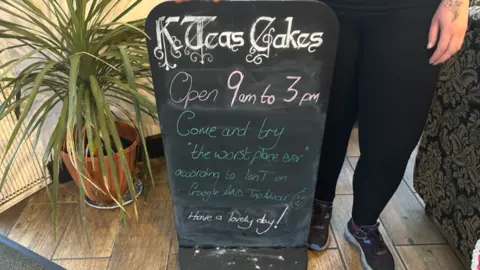 K Teas Cakes
Open 9am to 3pm
Come and try
"the worst place ever"
according to Ian T on
Google
Have a lovely day!